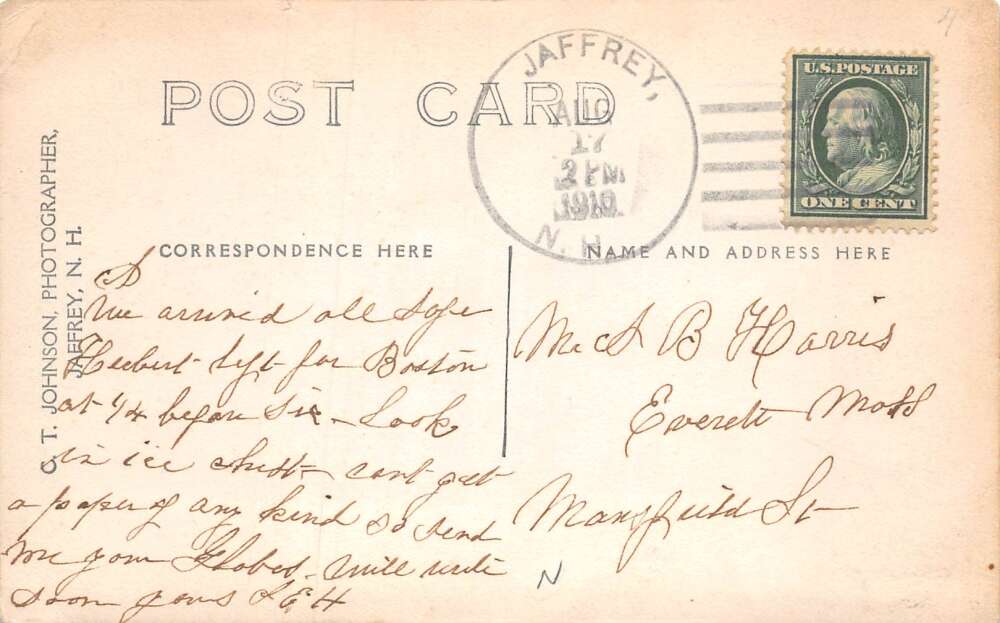 POST CARD
C. T. JOHNSON, PHOTOGRAPHER,
JAFFREY, N. H.
JAFFREY,
AUG
17
2 PM
1910
N. H.
U.S. POSTAGE
ONE CENT
CORRESPONDENCE HERE
NAME AND ADDRESS HERE
We arrived all safe
Herbert left for Boston
at 1/4 before six - Look
in ice chest - cant get
a paper of any kind so send
me your Globes. will write
soon yours L E H
B Harris
Everett Mass
Mansfield St
N